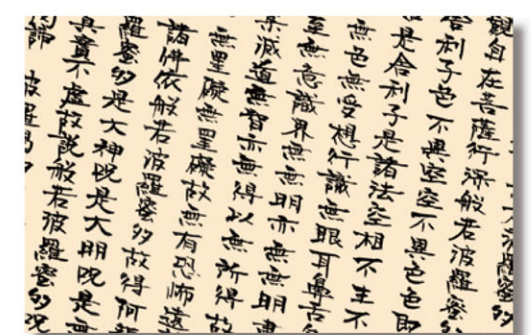 觀自在菩薩行深般若波羅蜜多
舍利子色不異空空不異色色即
是舍利子是諸法空相不生不
無色無受想行識無眼耳鼻舌
至無意識界無無明亦無無明盡
集滅道無智亦無得以無所得故
無罣礙無罣礙故無有恐怖遠
諸佛依般若波羅蜜多故得阿
羅蜜多是大神呪是大明呪是無
真實不虛故說般若波羅蜜多呪
諦 波羅